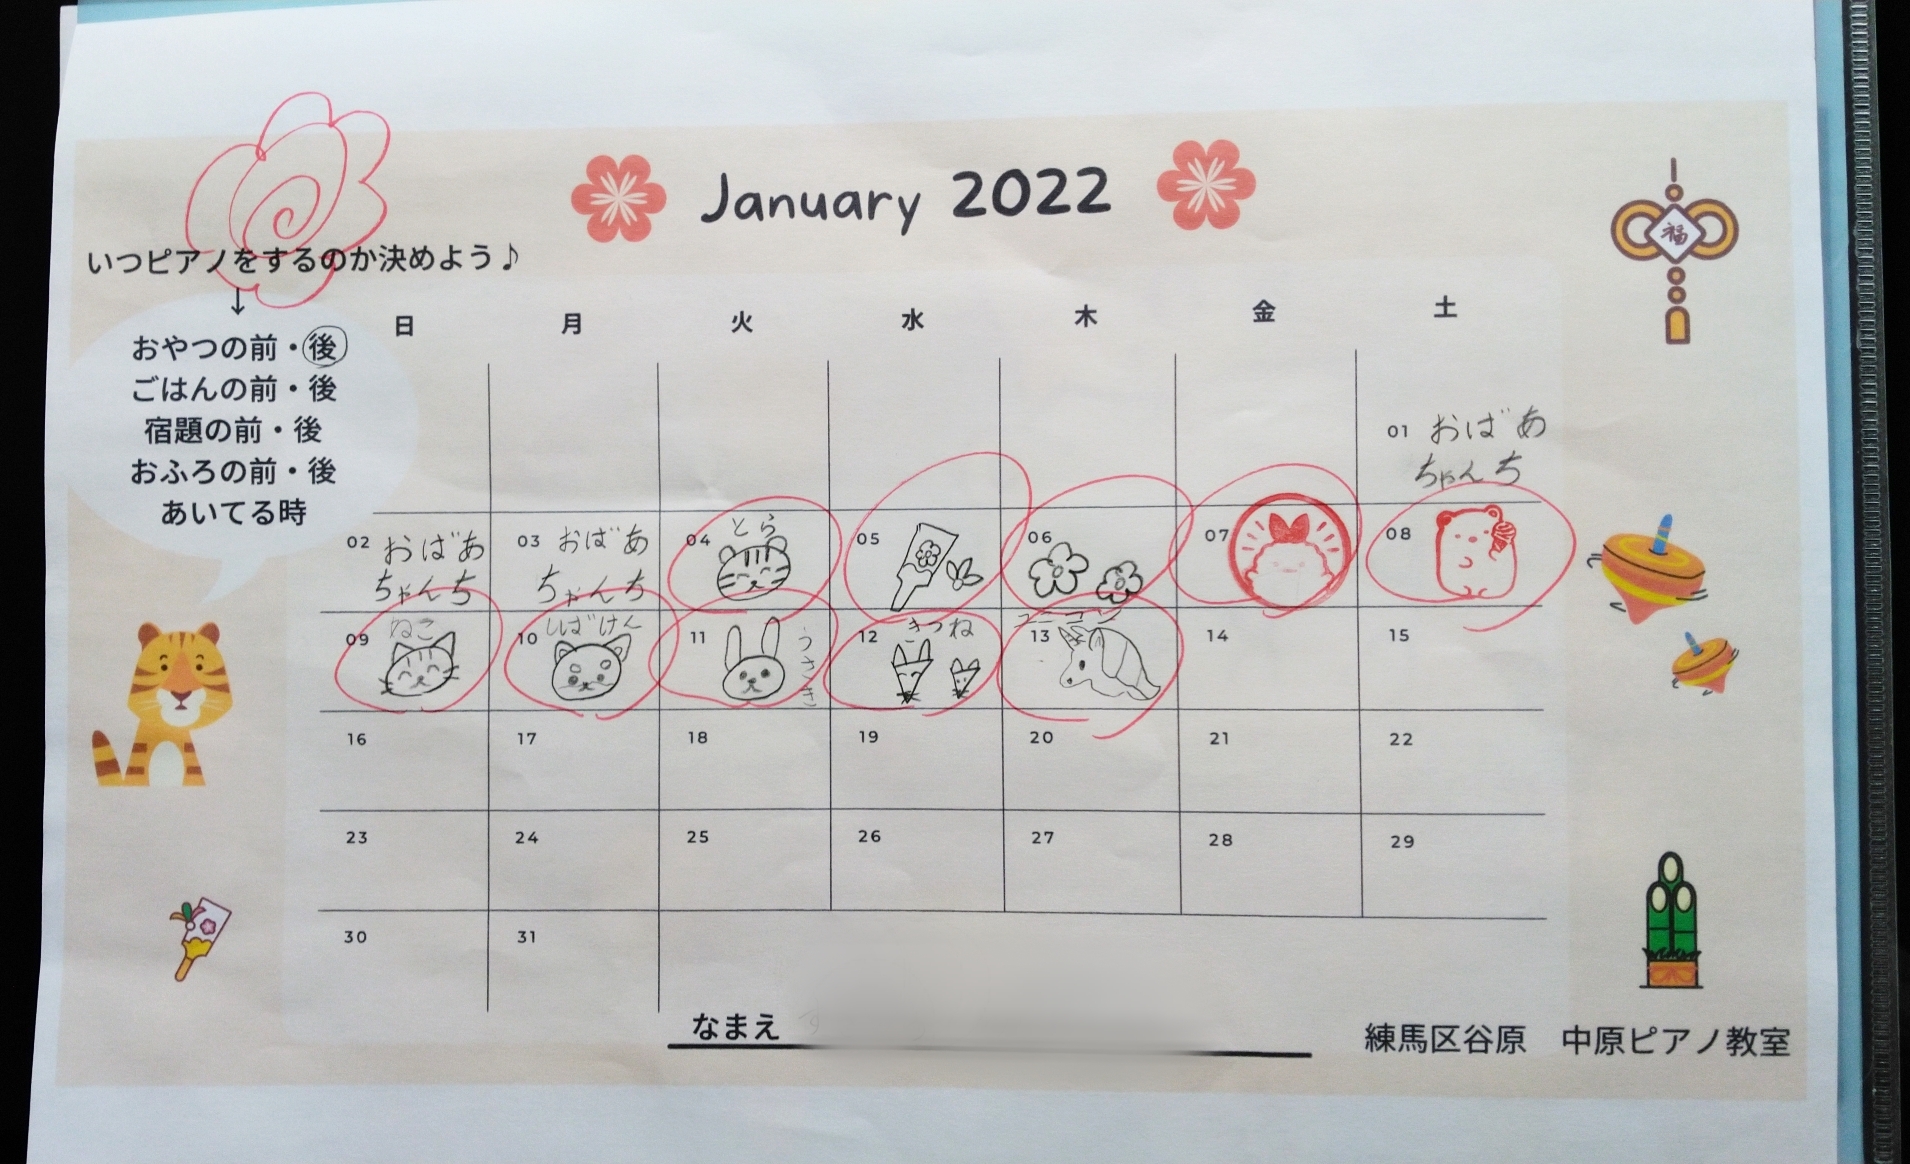 January 2022
福
いつピアノをするのか決めよう♪
↓
おやつの前・後
ごはんの前・後
宿題の前・後
おふろの前・後
あいてる時
日 月 火 水 木 金 土
01 おばあ
ちゃんち
02 おばあ
ちゃんち
03 おばあ
ちゃんち
04 とら
05
06
07
08
09 ねこ
10 しばけん
11 うさぎ
12 きつね
13 ユニコーン
14
15
16 17 18 19 20 21 22
23 24 25 26 27 28 29
30 31
なまえ
練馬区谷原 中原ピアノ教室